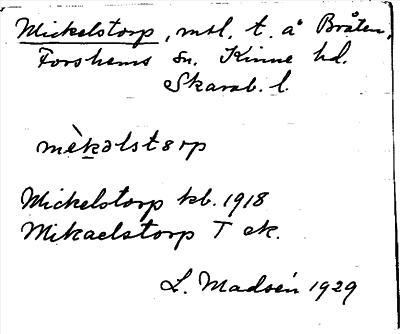 Mickelstorp, msl. t. å Bråten,
Forshems sn. Kinne hd.
Skarab. l.
mèkəlstɛrp
Mickelstorp kb. 1918
Mikaelstorp T ek.
L. Madsén 1929